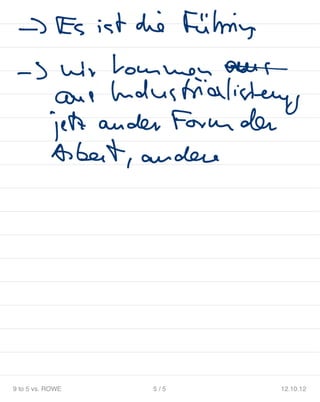 → Es ist die Führung
→ wir kommen aus
aus Industrialisierung
jetzt andere Form der
Arbeit, andere
9 to 5 vs. ROWE 5 / 5 12.10.12